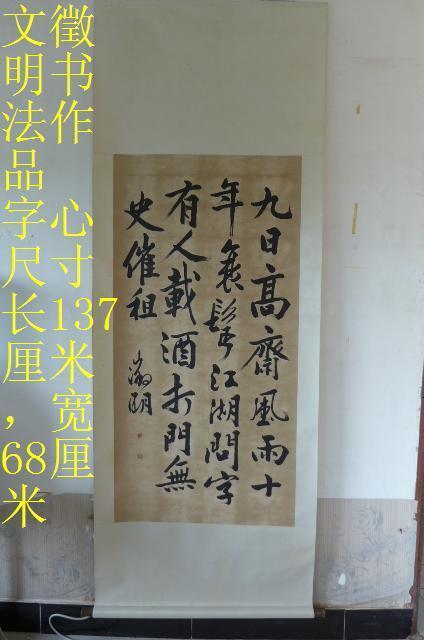 文徵
明书
法作
品
字心
尺寸
长137
厘米
，宽
68厘
米
九日高齋風雨十
年衰鬢江湖問字
有人載酒打門無
史催租
徵明